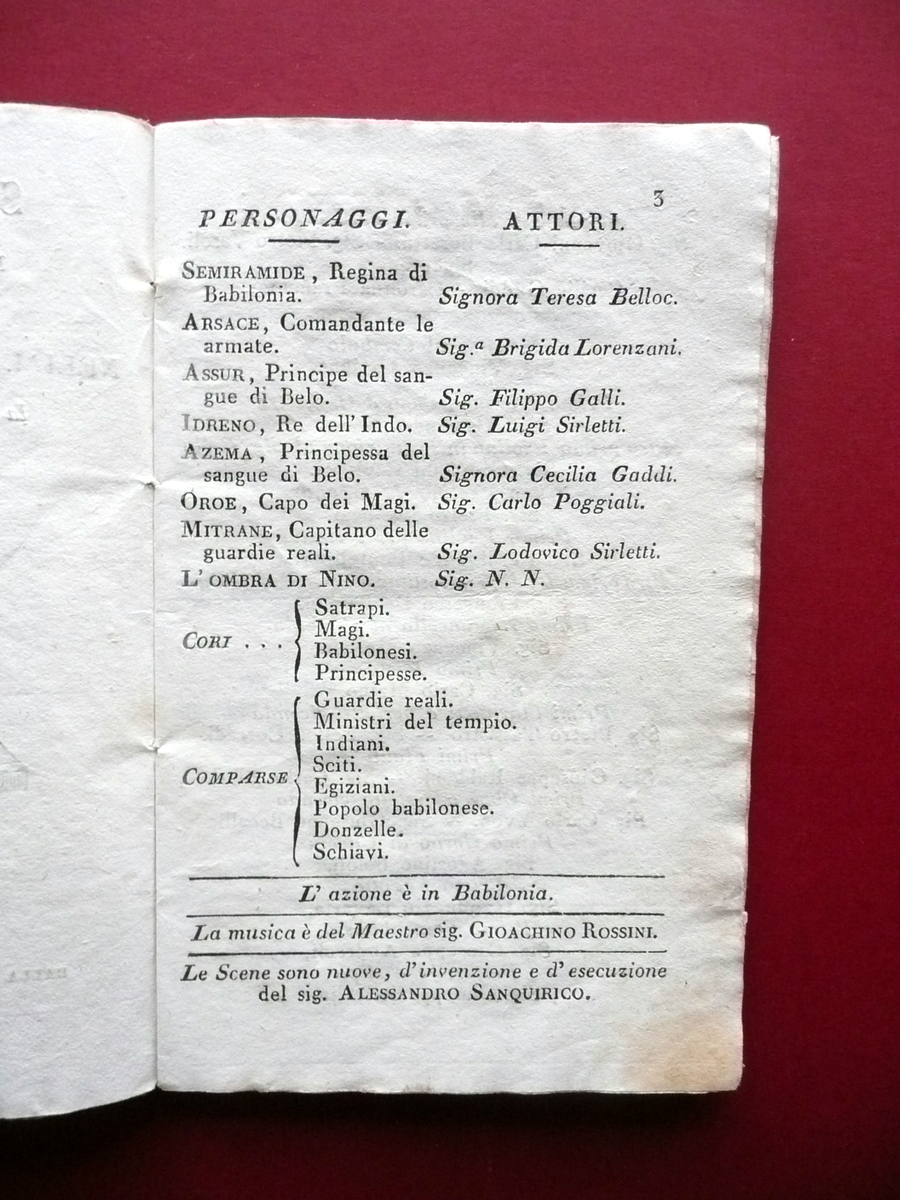 3
PERSONAGGI. ATTORI.
SEMIRAMIDE, Regina di
Babilonia. Signora Teresa Belloc.
ARSACE, Comandante le
armate. Sig.ª Brigida Lorenzani.
ASSUR, Principe del san-
gue di Belo. Sig. Filippo Galli.
IDRENO, Re dell' Indo. Sig. Luigi Sirletti.
AZEMA, Principessa del
sangue di Belo. Signora Cecilia Gaddi.
OROE, Capo dei Magi. Sig. Carlo Poggiali.
MITRANE, Capitano delle
guardie reali. Sig. Lodovico Sirletti.
L' OMBRA DI NINO. Sig. N. N.
CORI . . .
Satrapi.
Magi.
Babilonesi.
Principesse.
COMPARSE
Guardie reali.
Ministri del tempio.
Indiani.
Sciti.
Egiziani.
Popolo babilonese.
Donzelle.
Schiavi.
L' azione è in Babilonia.
La musica è del Maestro sig. GIOACHINO ROSSINI.
Le Scene sono nuove, d' invenzione e d' esecuzione
del sig. ALESSANDRO SANQUIRICO.